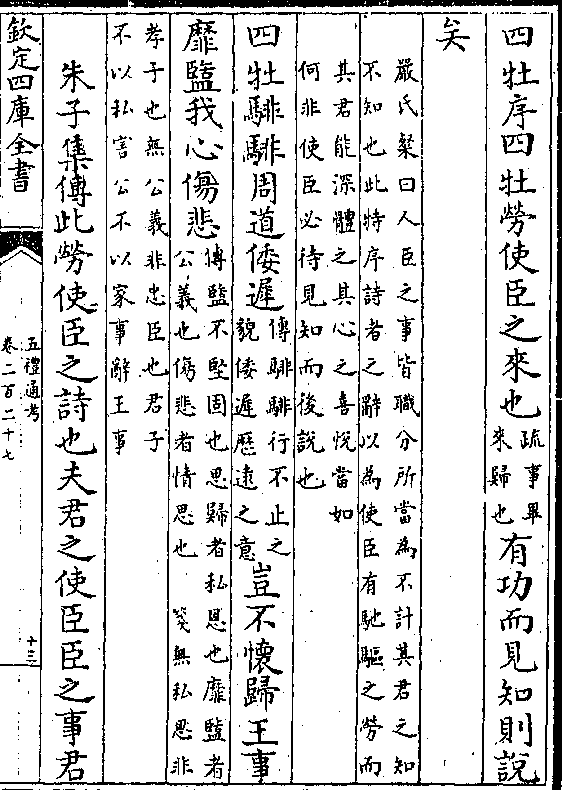 四牡序四牡勞使臣之來也疏事畢
來歸也有功而見知則說
矣
嚴氏粲曰人臣之事皆職分所當為不計其君之知
不知也此特序詩者之辭以為使臣有馳驅之勞而
其君能深體之其心之喜悅當如
何非使臣必待見知而後說也
四牡騑騑周道倭遲傳騑騑行不止之
貌倭遲歷逺之意豈不懷歸王事
靡盬我心傷悲傳盬不堅固也思歸者私恩也靡盬者
公義也傷悲者情思也 箋無私恩非
孝子也無公義非忠臣也君子
不以私害公不以家事辭王事
朱子集傳此勞使臣之詩也夫君之使臣臣之事君
欽定四庫全書
五禮通考
卷二百二十七
十三